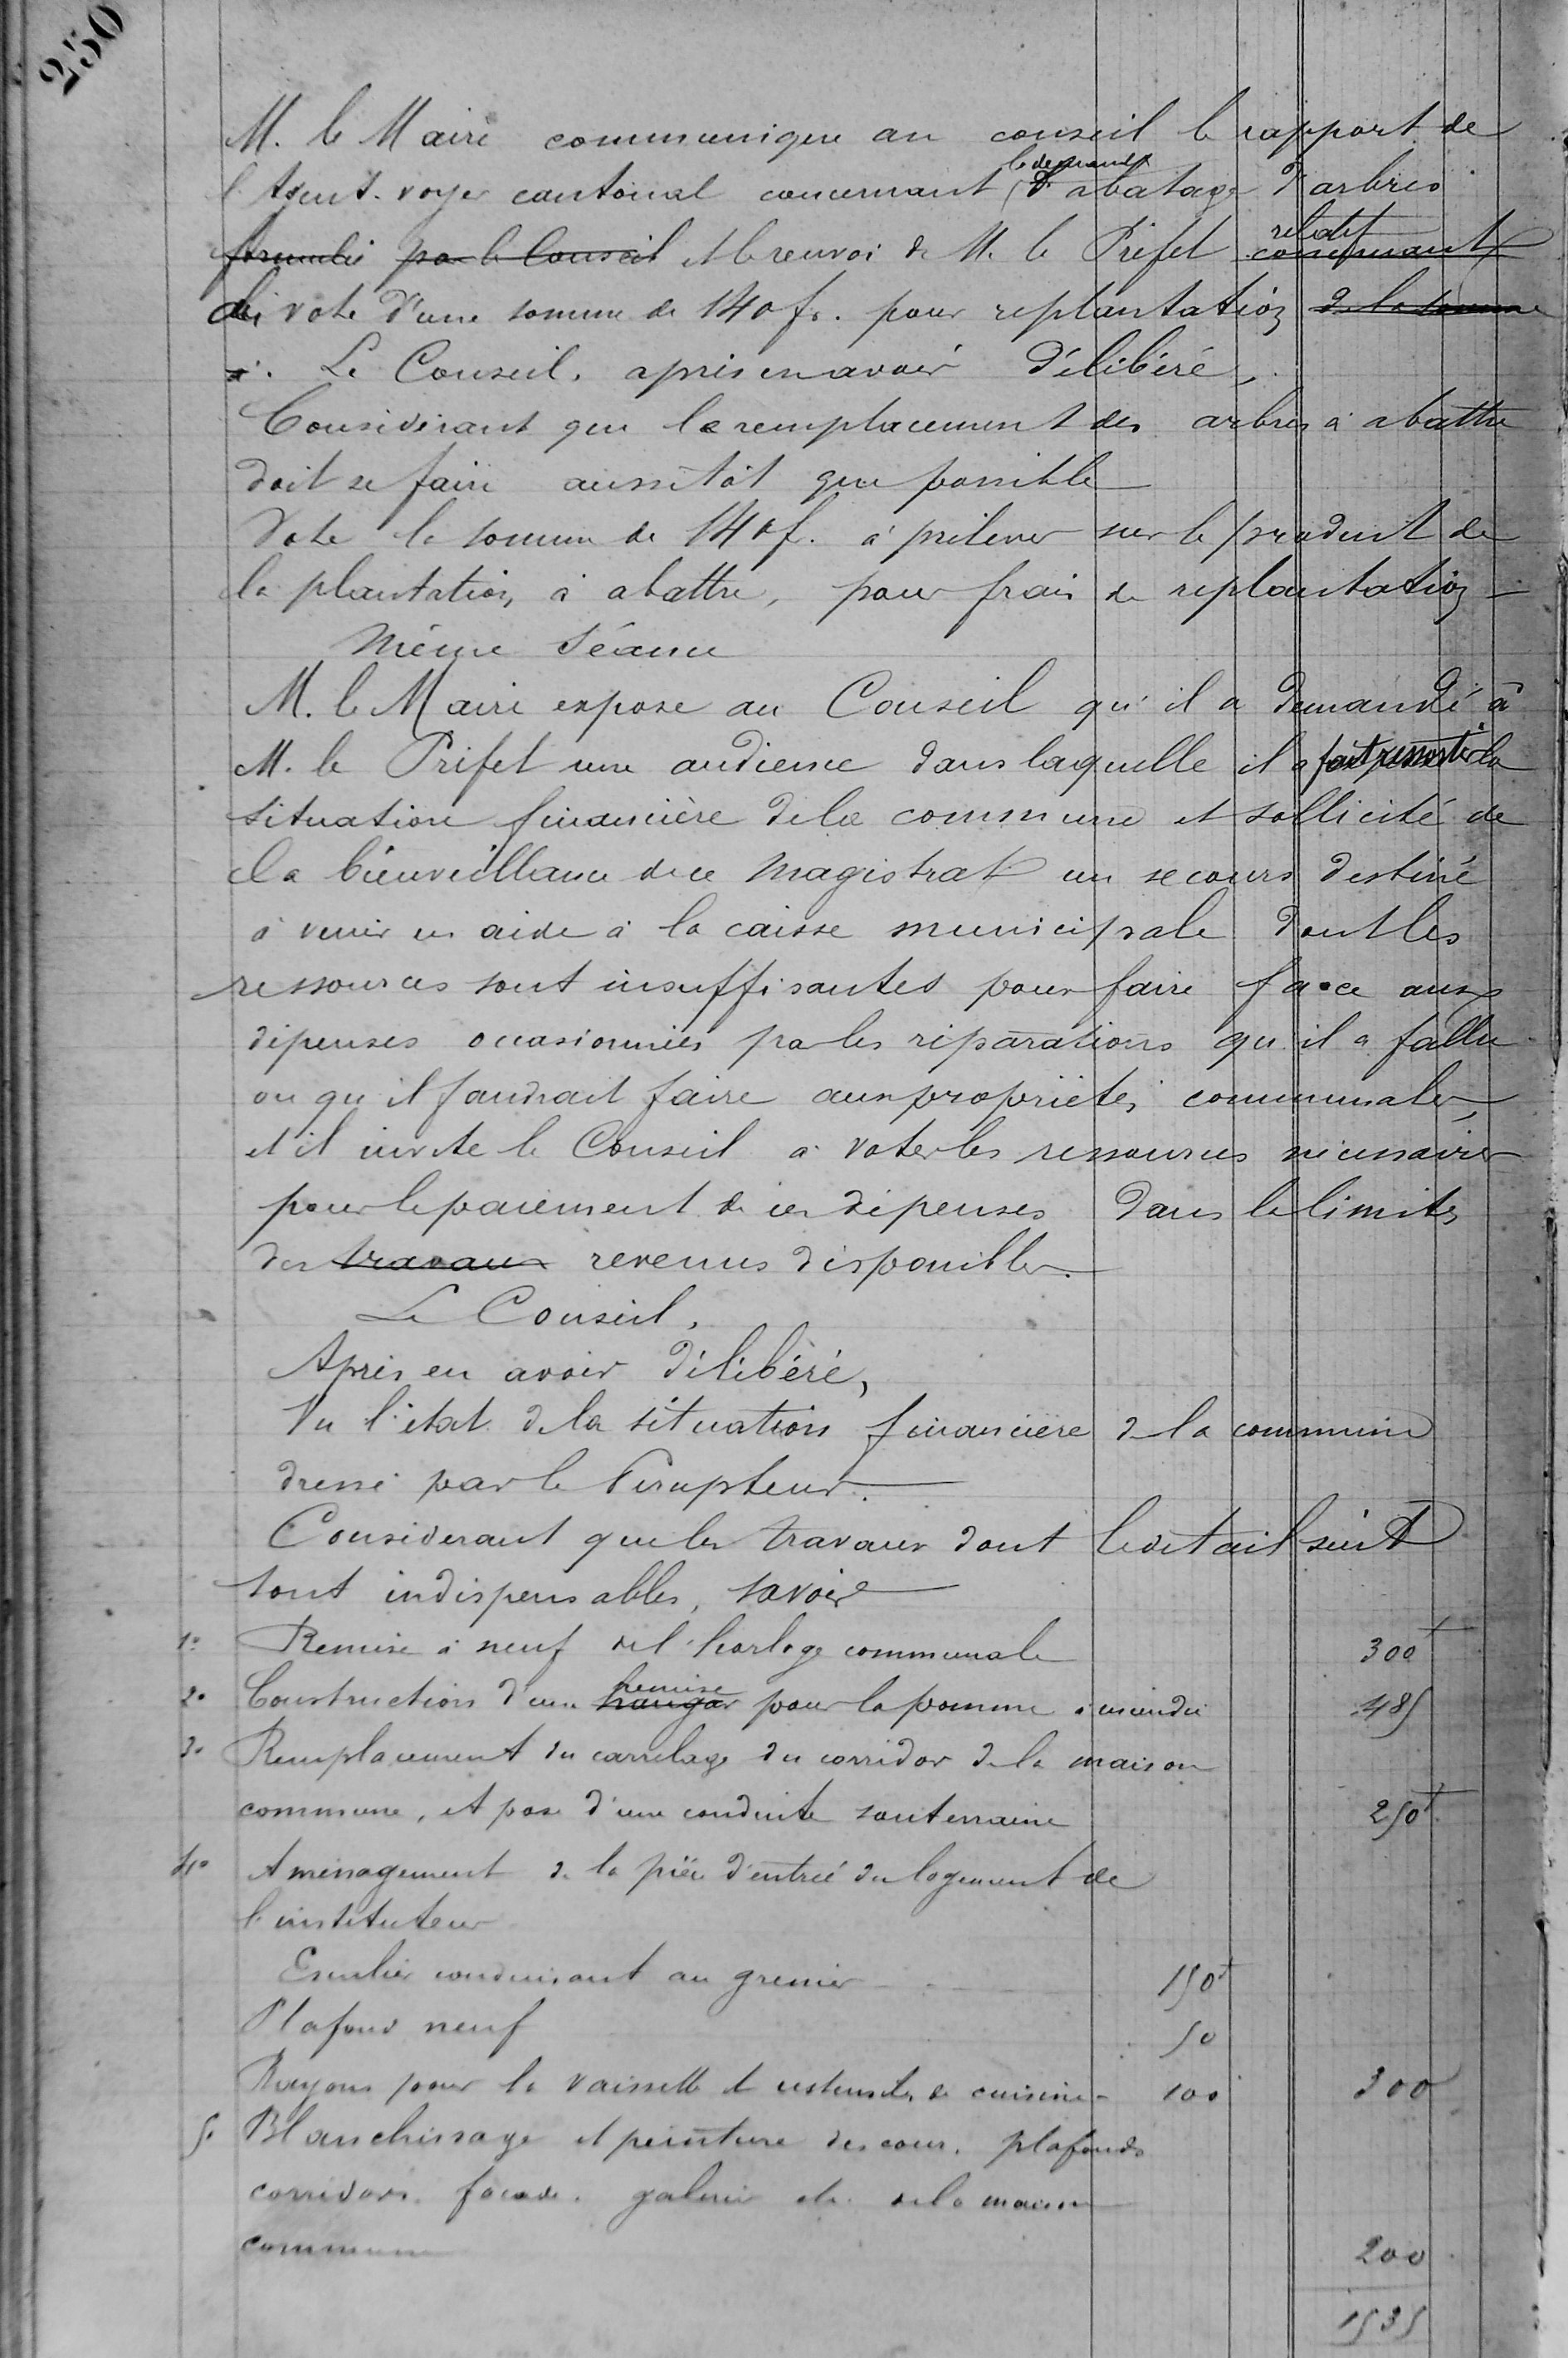 250
M. le Maire communique au conseil le rapport de
l'Agent-voyer cantonal concernant la demande d'abatage d'arbres
formulée par le Conseil et le renvoi de M. le Préfet concernant relatif
au vote d'une somme de 140 fr. pour replantation de la somme
Le Conseil, après en avoir délibéré,
Considérant que le remplacement des arbres à abattre
doit se faire aussitôt que possible
Vote la somme de 140 f. à prélever sur le produit de
la plantation à abattre, pour frais de replantation
Même Séance
M. le Maire expose au Conseil qu'il a demandé à
M. le Préfet une audience dans laquelle il a fait ressortir la
situation financière de la commune et sollicité de
la bienveillance de ce Magistrat un secours destiné
à venir en aide à la caisse municipale dont les
ressources sont insuffisantes pour faire face aux
dépenses occasionnées par les réparations qu'il a fallu
ou qu'il faudrait faire aux propriétés communales,
et il invite le Conseil à voter les ressources nécessaires
pour le paiement de ces dépenses dans le limites
des travaux revenus disponibles.
Le Conseil,
Après en avoir délibéré,
Vu l'état de la situation financière de la commune
dressé par le Percepteur.
Considérant que les travaux dont le détail suit
sont indispensables, savoir
1º Remise à neuf de l'horloge communale 300f
2º Construction d'une hangar remise pour la pomme à incendie 485
3º Remplacement du carrelage du corridor de la maison
commune, et pose d'une conduite souterraine 250f
4º Aménagement de la pièce d'entrée du logement de
l'instituteur
Escalier conduisant au grenier 150f
Plafond neuf 50
Rayons pour la vaisselle et ustensiles de cuisine 100 300
5º Blanchissage et peinture des cour, plafonds
corridors, façade, galerie etc. de la maison
commune 200
1535